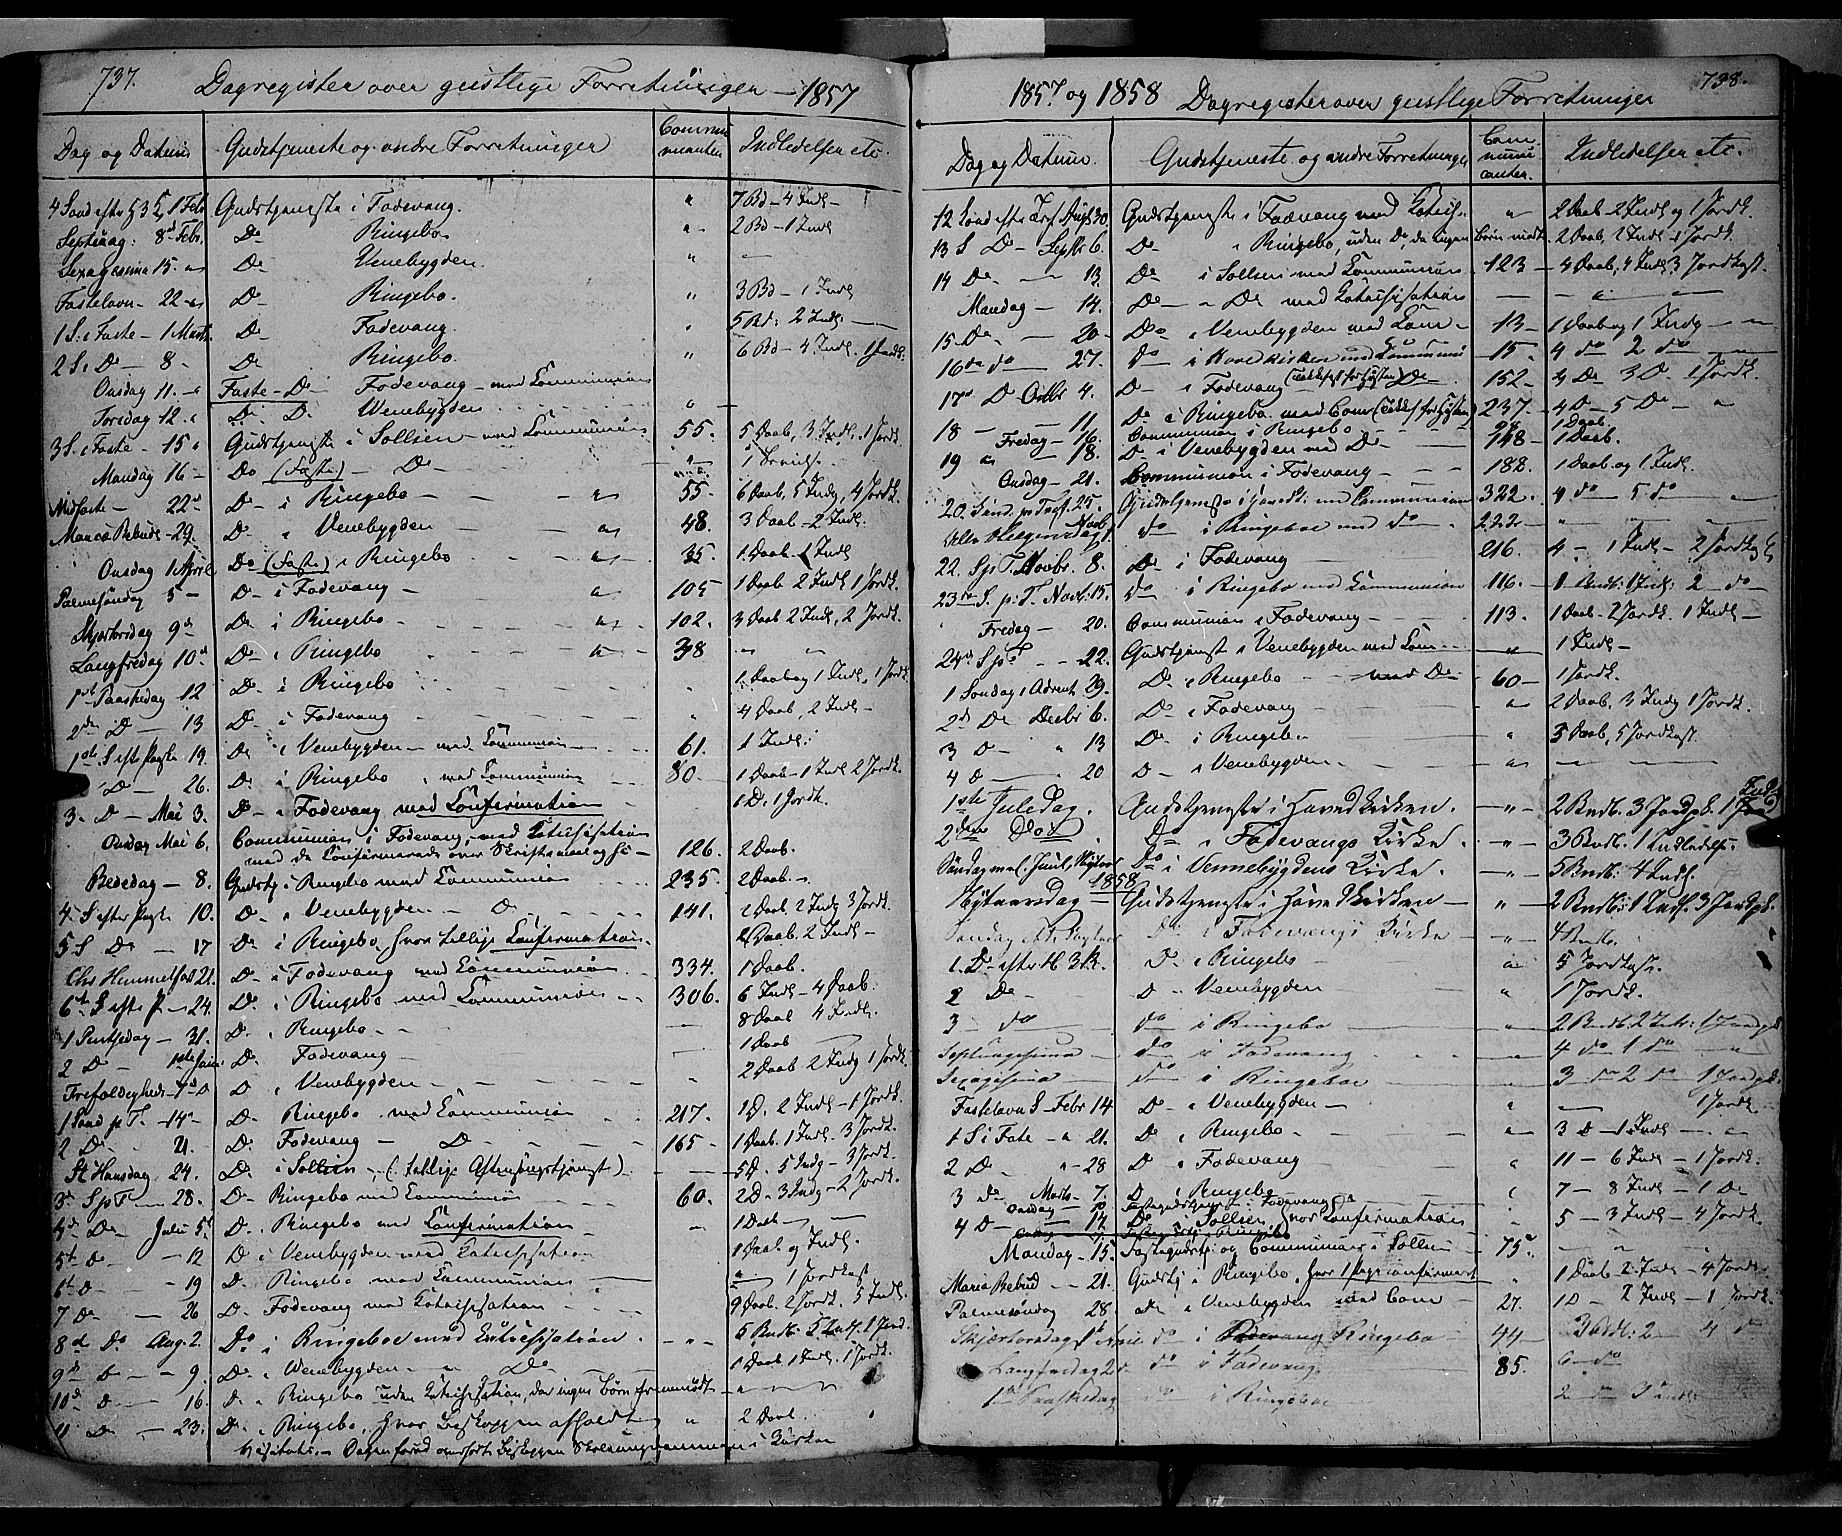 737. Dagregister over geistlige Forretninger — 1857
Dag og Datum Gudstjeneste og andre Forretninger Communicanter Indledelser etc.
4 Sønd efter H 3 K, 1 Febr Gudstjeneste i Fodevang. " 7 Bd — 4 Indl —
Septuag: 8de Febr. Do Ringebo " 2 Bd — 1 Indl
Sexagesima 15. " Do Venebygden " —
Fastelavn — 22 " Do Ringebo. " 3 Bd — 1 Indl
1 S. i Faste — 1 Marts Do Fodevang. " 5 Bd: 2 Indl —
2 S. i D — 8 — Do Ringebo. " 6 Bd — 4 Indl. 1 Jordk.
Onsdag 11. " Faste-Do Fodevang — med Communion
Torsdag 12. " Do Do Wenebygden "
3 S. i Faste — 15 " Gudstjeneste i Sollien — med Communion 55. 5 Daab, 3 Indl. 1 Jordk.
Mandag 16 — Do (Faste) — Do — " 1
Midfaste — 22 Do i Ringebo — — " 55. 6 Daab, 5 Indg, 4 Jordk.
Mariæ Bebud. 29. Do i Venebygden — " 48. 3 Daab — 2 Indl.
Onsdag 1 April Do (Faste) i Ringebo " 35. 1 Daab 1 Indl
Palmesøndag 5 — Do i Fodevang — " 105 1 Daab 2 Indl 1 Jordk.
Skjærtorsdag 9de Do i Ringebo — " 102. 3 Daab 2 Indl, 2 Jordk.
Langfredag 10de Do i Ringebo " 38 — "
1ste Paaskedag 12 Do i Ringebo 1 Daab og 1 Indl, 1 Jordk
2den D — 13 Do i Fodevang — " 4 Daab, 2 Indl —
1ste S. eft Paaske 19. Do i Venebygden — med Communion — 61. 1 Indl:
D — 26. Do i Ringebo, med Communion 80 — 1 Daab — 1 Indl 2 Jordk.
3. D — Mai 3. Do i Fodevang med Confirmation 1 D. 1 Jordk.
Onsdag Mai 6. Communion i Fodevang, med Catechisation
med de Confirmerede over 126. 2 Daab.
Bededag — 8. Gudstj i Ringebo med Communion 235. 2 Daab —.
4. S efter Paaske 10. Do i Venebygden — D — 141. 2 Daab 2 Indg 3 Jordk.
5 S Do — 17 Do i Ringebo, hvor tillige Confirmation. 2 Daab. 2 Indl —
Chr Himmelfart 21. Do i Fodevang med Communion 334. 1 Daab.
6te S efter P — 24. Do i Ringebo med Communion — 306. 6 Indl — 4 Daab.
1 Pintsedag — 31. Do i Ringebo — — 8 Daab 4 Indl.
2 D — 1ste Juni Do Fodevang — 1 Daab —
Trefoldigheds 7de D i Venebygden — — " 2 Daab 2 Indg 1 Jordk
1 Sønd p T. — 14 Do Ringebo med Communion 217. 1 D. 2 Indl — 1 Jordk.
2 D. — 21. Do Fodevang — D — 165 1 Daab. 1 Indl. 3 Jordk.
St Hansdag, 24. Do i Sollien, (tillige Aftensangstjenst) — 5 D. 5 Indg — 3 Jordk.
3. S p T — 28. Do Ringebo med Communion 60. 2 D. 3 Indg — 2 Jordk.
4de Do Juli 5te Do Ringebo med Confirmation — 1 Daab — —
5te D — 12 D i Venebygden med Catechisation 1 Daab og Indl.
6te D — — 19 D. Ringebo med Communion — " 1 Jordkast
7 Do — 26 Do Fodevang med Catechisation — 9 Daab. 2 Jordk. 5 Indl.
8de Do Aug. 2. Do i Ringeboe med Catechisation. — " 5 Bndb. 5 Indl. 1 Jord.
9de D — — 9. Do i Wenebygden — " Do — 1 Daab 1 Indl. 1 Jordk.
10de D — 16. D i Ringebo uden Catechisation, da ingen Børn fremmødt — " —
11 D — — 23. Do i Ringebo, hvor Biskoppen afholdt " 2 Daab. "
Visitats. — Dagen forud Biskoppen i Kirken
1857 og 1858 Dagregister over geistlige Forretninger 738.
Dag og Datum. Gudstjeneste og andre Forretninger Communicanter. Indledelser etc.
12 Sønd efter Trf. Aug 30. Gudstjeneste i Fodevang med Catech. " 2 Daab — 2 Indl og 1 Jordk.
13 S D — Septbr 6. Do i Ringebo, uden Do, da ingen Børn mødt. 2 Daab, 2 Indl, 1 Jordk.
14 Do — 13. Do i Sollien med Communion 123 — 4 Daab, 4 Indl, 3 Jordkast.
Mandag — 14. Do — Do med Catechisation — "
15 Do — — 20. Do i Venebygden med Com — 13 — 1 Daab og 1 Indg — —
16de do — 27. do i Hovedkirken med Communion — 15 — 4 do 2 do —
17de D Octbr 4. D — i Fodevang (Takkefest for Høsten) Do — 152 — 2 Do 3 D — 1 Jordk.
18 — — 11 Do i Ringebo med Com (Takkef for Høsten) 237 — 4 D — 5 D — "
Fredag — 16. Communion i Ringebo 98 — 1 Daab.
19 " — 18. D — i Venebygden med Do — 148 — 1 Daab.
Onsdag — 21. Communion i Fodevang — — 182 — 1 Daab og 1 Indl.
20. Sønd. p. Tref. 25. Gudstjeneste i Hovedk: med Communion 322. 4 do — 5 do —
Alle Helgensdag 1 Novb do i Ringeboe med do — 222. " —
22. S p T. Novbr. 8. Do i Fodevang — 216. 4 — 1 Indl — 2 Jordkast
23de S. p. T. Novb: 15. do i Ringebo med Communion 116 — 1 Bndb: 1 Indl: 2 do —
Fredag — 20. Communion i Fodevang — — 113. 1 Daab — 2 Jordk. 1 Indl —
24de S p T — 22. Gudstjenst i Venebygden med Com — " 1 Indl —
1 Søndag i Advent 29. Do i Ringebo — med Do — 60 — 1 Jordk.
2de Do Decbr 6. Do i Fodevang — " 2 Daab, 3 Indg 1 Jordk.
3 D — " 13 Do i Ringebo — " 3 Daab, 5 Jordkast.
4 D — 20 D — i Venebygden — — " — —
1ste Juledag, Gudstjeneste i Hovedkirken. — " — 2 Bndb. 3 Jordpk. 1 Indl
2den Do Do i Fodevangs Kirke. — " — 3 Bndb: 1 Indledelse.
Søndag mel. Juul, Nytaar Do i Vennebygdens Kirke. — " — 5 Bndb: 4 Indl.
1858
Nytaarsdag — Gudstjeneste i Hovedkirken — " — 2 Bndb: 1 Indl. 3 Jordpk.
Søndag eft. Nytaar Do i Fodevangs Kirke " 4 Bndb.
1. D — efter H. 3 K. Do i Ringebo — " 5 Jordkast.
2 Do — D — Venebygden — " 1 Jordk.
3 — do do i Ringebo " 2 Bndb. 2 Indl: 1 Jordpk
Septuagesima — do i Fodevang 4 do 1 do —
Sexagesima — do i Ringeboe 3 do 2 do 1 Jordpk.
Fastelavn S — Febr 14 Do i Venebygden — " — 1 Jordk
1 S i Faste — " 21. Do i Ringebo — " 3 D — 1 Indl — "
2 D — " — 28 D i Fodevang — " 11 — 6 Indl — 1 Jordk.
3 Do Marts — 7. D i Ringebo " 7 — 8 Indl — 1 Do
Onsdag — 10. Fastegudstj i Fodevang
4 D — — 14 Do Sollien, hvor Confirmation " 5 — 3 Indl — 4 Jordk
Mandag — 15. Fastegudstj: og Communion i Sollien — 75. —
Mariæ Bebud — 21. Gudstj i Ringebo, hvor 1 Pige confirmert " 1 Daab 2 Indl — 4 Jordk
Palmesøndag 28. do i Venebygden med Com — 27. 1 D — 2 Indl — 1 Jordk.
Skjærtorsdag 1ste April do i Ringebo — 44 — 3 Bndb: 2 — 4 do
Langfredag 2 do i Fodevang. 85. 6 do
1ste Paaskedag do i Ringeboe 2 do 3 Indl